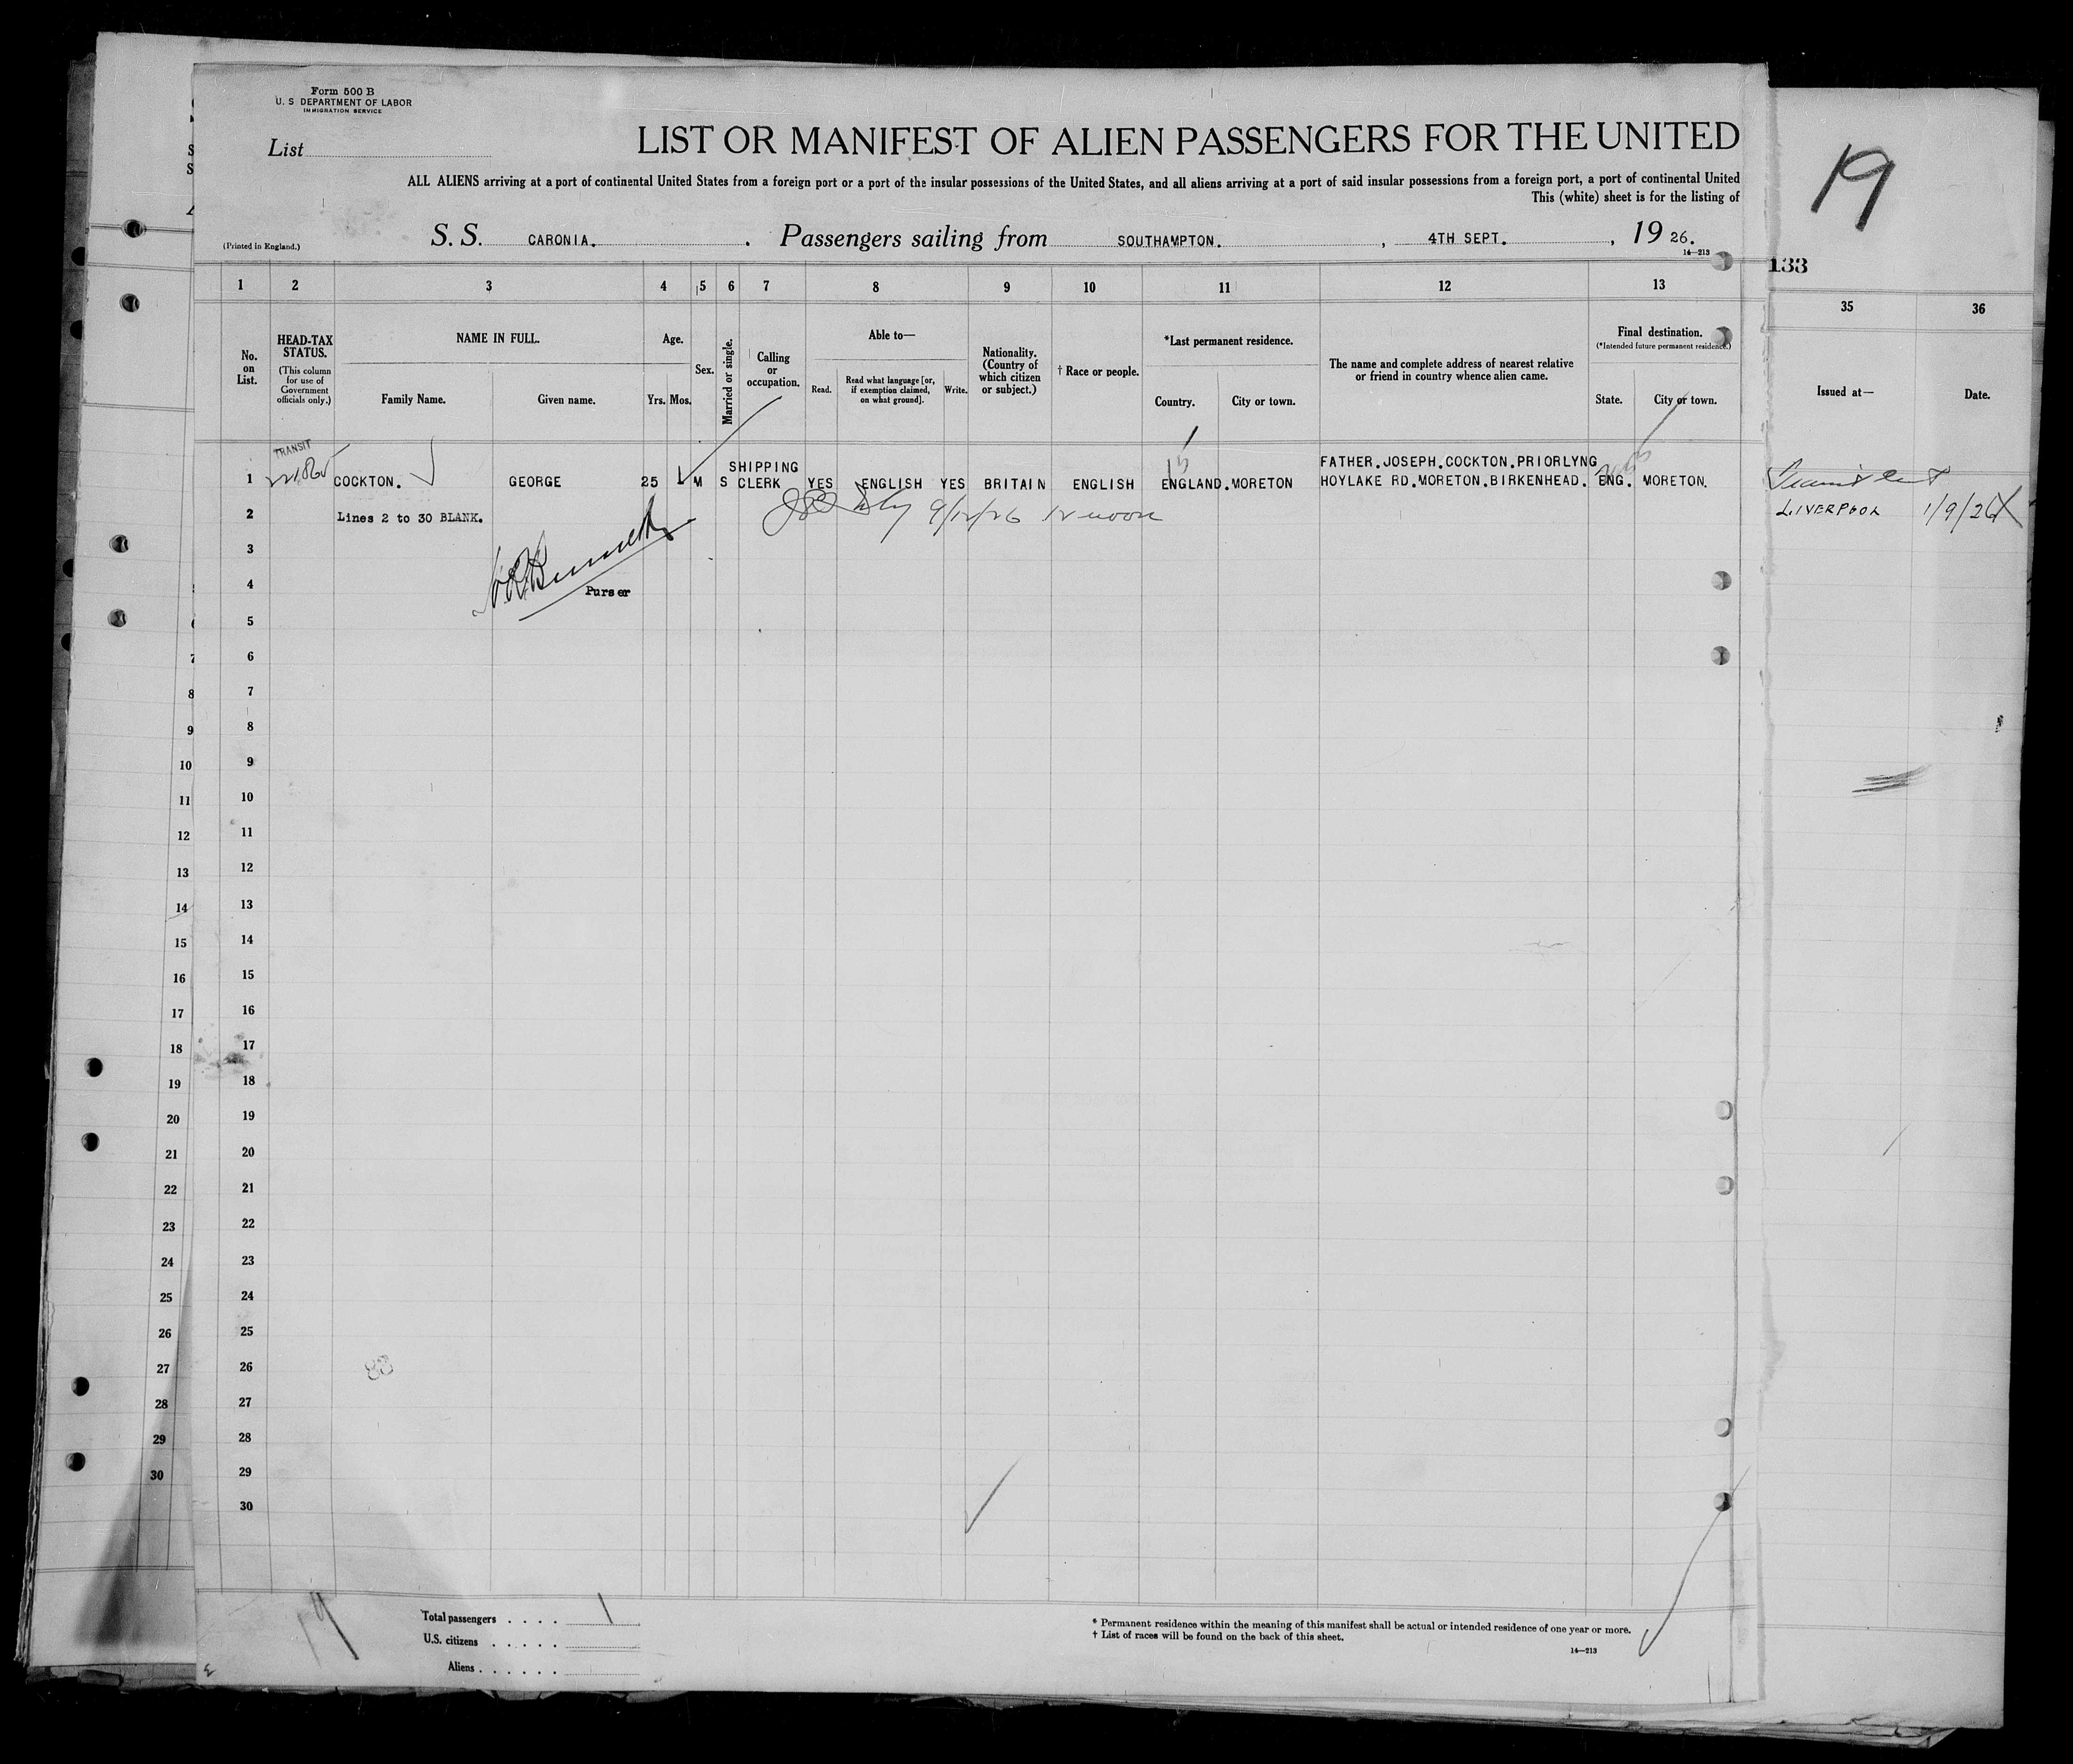 Form 500 B
U. S DEPARTMENT OF LABOR
IMMIGRATION SERVICE
List
LIST OR MANIFEST OF ALIEN PASSENGERS FOR THE UNITED
19
ALL ALIENS arriving at a port of continental United States from a foreign port or a port of the insular possessions of the United States, and all aliens arriving at a port of said insular possessions from a foreign port, a port of continental United
This (white) sheet is for the listing of
(Printed in England.)
S. S. CARONIA. . Passengers sailing from SOUTHAMPTON. , 4TH SEPT. , 19 26.
14—213
133
1 2 3 4 5 6 7 8 9 10 11 12 13
35 36
No. on List.
HEAD-TAX STATUS.
(This column for use of Government officials only.)
NAME IN FULL.
Family Name. Given name.
Age.
Yrs. Mos.
Sex.
Married or single.
Calling or occupation.
Able to—
Read. Read what language [or, if exemption claimed, on what ground]. Write.
Nationality. (Country of which citizen or subject.)
† Race or people.
*Last permanent residence.
Country. City or town.
The name and complete address of nearest relative or friend in country whence alien came.
Final destination.
(*Intended future permanent residence.)
State. City or town.
Issued at— Date.
TRANSIT
1 COCKTON. GEORGE 25 M S SHIPPING CLERK YES ENGLISH YES BRITAIN ENGLISH ENGLAND. MORETON FATHER.JOSEPH.COCKTON.PRIORLYNG HOYLAKE RD.MORETON.BIRKENHEAD. ENG. MORETON.
2 Lines 2 to 30 BLANK. 9/12/26 12 noon
LIVERPOOL 1/9/26
3
4 Purser
5
6
7
8
9
10
11
12
13
14
15
16
17
18
19
20
21
22
23
24
25
26
27
28
29
30
7
8
9
10
11
12
13
14
15
16
17
18
19
20
21
22
23
24
25
26
27
28
29
30
19
Total passengers . . . . 1
U.S. citizens . . . . .
Aliens . . . . . .
* Permanent residence within the meaning of this manifest shall be actual or intended residence of one year or more.
† List of races will be found on the back of this sheet.
14—213